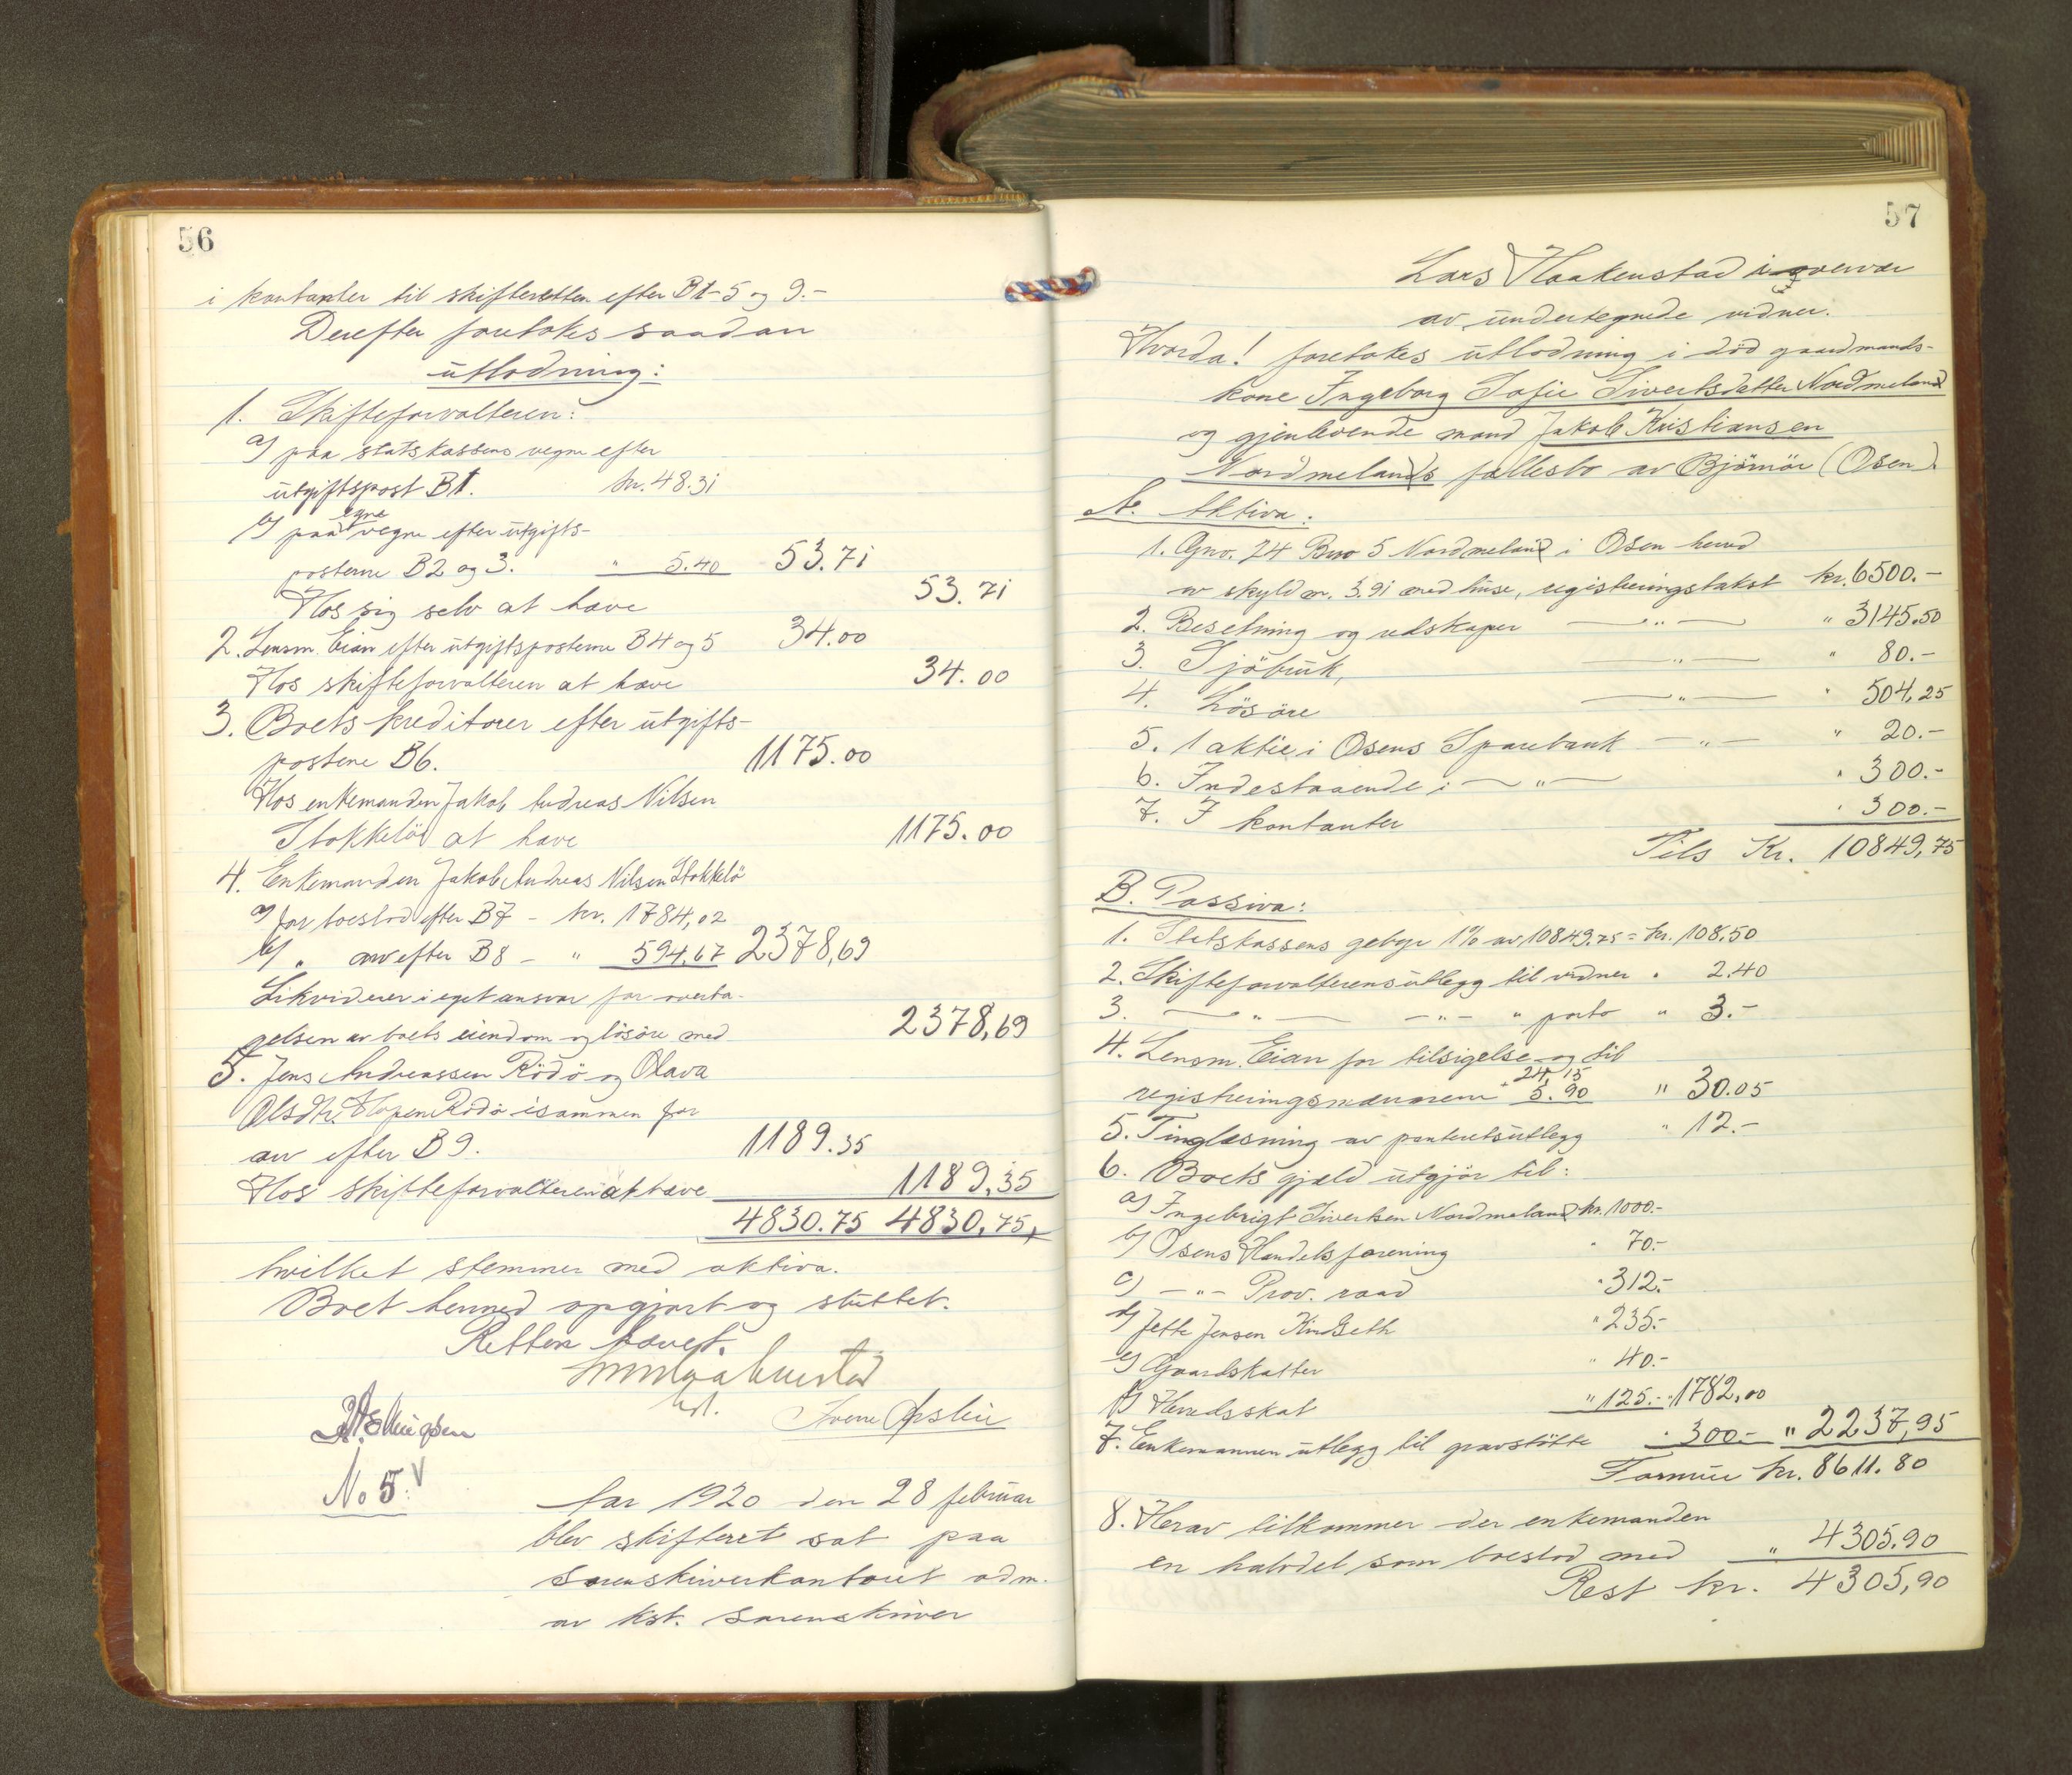 56
i kontanter til skifteretten efter B1-5 og 9.-
Derefter foretokes saadan
utlodning:
1. Skifteforvalteren:
a) paa statskassens vegne efter
utgiftspost B1. kr. 48.31
b) paa egne vegne efter utgifts-
posterne B2 og 3. " 5.40 53.71
Hos sig selv at have 53.71
2. Lensm. Eian efter utgiftsposterne B4 og 5 34.00
Hos skifteforvalteren at have 34.00
3. Boets kreditorer efter utgifts-
postene B6. 1175.00
Hos enkemanden Jakob Andreas Nilsen
Stokkelö at have 1175.00
4. Enkemanden Jakob Andreas Nilsen Stokkelö
a) for boeslod efter B7 - kr. 1784,02
b) " arv efter B8 - " 594.67 2378,69
Likviderer i eget ansvar for overta-
gelsen av boets eiendom og lösöre med 2378,69
5. Jens Andreassen Rödö og Olava
Olsdtr. Hopen Rödö isammen for
arv efter B9. 1189.35
Hos skifteforvalteren at have 1189,35
4830.75 4830,75,
hvilket stemmer med aktiva.
Boet hermed opgjort og sluttet.
Retten hævet.
No 5.
Aar 1920 den 28 februar
blev skifteret sat paa
Sorenskriverkontoret adm.
av kst. Sorenskriver
57
Lars Haakenstad i overvær
av undertegnede vidner.
Hvorda! foretokes utlodning i död gaardmands-
kone Ingeborg Sofie Sivertsdatter Nordmeland
og gjenlevende mand Jakob Kristiansen
Nordmelands fællesbo av Bjørnör (Osen).
A. Aktiva:
1. Gno. 74 Bno 5 Nordmeland i Osen herred
av skyld m. 3.91 med huse, registreringstakst kr. 6500.-
2. Besetning og redskaper — " — " 3145.50
3. Sjöbruk, — " — " 80.-
4. Lösöre — " — " 504,25
5. 1 aktie i Osens Sparebank — " — " 20.-
6. Indestaaende i — " — " 300.-
7. I kontanter " 300.-
Tils Kr. 10849,75
B. Passiva:
1. Statskassens gebyr 1% av 10849.75 = kr. 108.50
2. Skifteforvalterens utlegg til vidner " 2.40
3. — " — - " - " porto " 3.-
4. Lensm. Eian for tilsigelse og til
24,15
registreringsmændene + 5.90 " 30.05
5. Tinglæsning av panteretsutlegg " 12.-
6. Boets gjæld utgjör til:
a) Ingebrigt Sivertsen Nordmeland kr. 1000.-
b) Osens Handelsforening " 70.-
c) - " - Prov. raad " 312.-
d) Jette Jensen Kindseth " 235.-
e) Gaardskatter " 40.-
f) Herredsskat " 125.- " 1782,00
7. Enkemannen utlegg til gravstötte " 300.- " 2237,95
Formue kr. 8611.80
8. Herav tilkommer der enkemanden
en halvdel som boeslod med " 4305.90
Rest kr. 4305,90